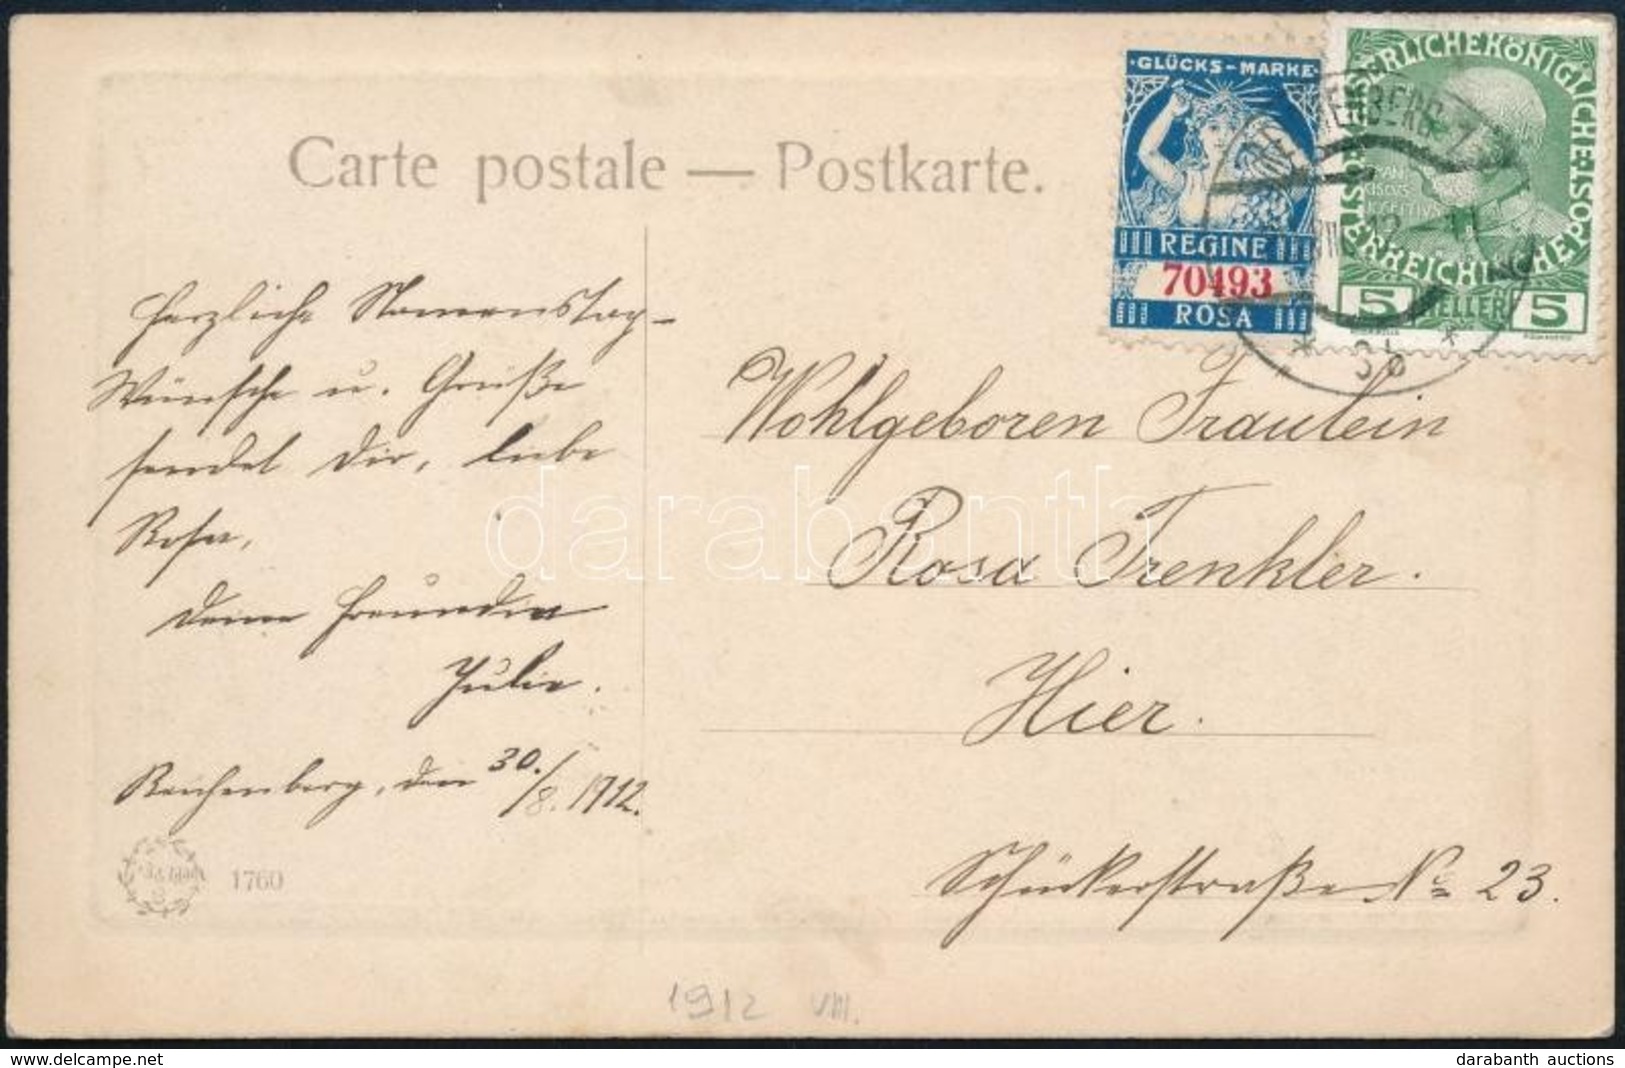 Carte postale — Postkarte.
·GLÜCKS-MARKE·
REGINE
70493
ROSA
KAISERLICHE KÖNIGLICHE POST
ÖSTERREICHISCHE
5 HELLER 5
REICHENBERG 1
Herzliche Namenstag-
Wünsche u. Grüße
sendet Dir, liebe
Rosa,
Deine Freundin
Julie.
Reichenberg, den 30./8. 1912.
Wohlgeboren Fräulein
Rosa Trenkler.
Hier.
Schückerstraße No 23.
1760
1912 VIII.
darabanth
darabanth auctions